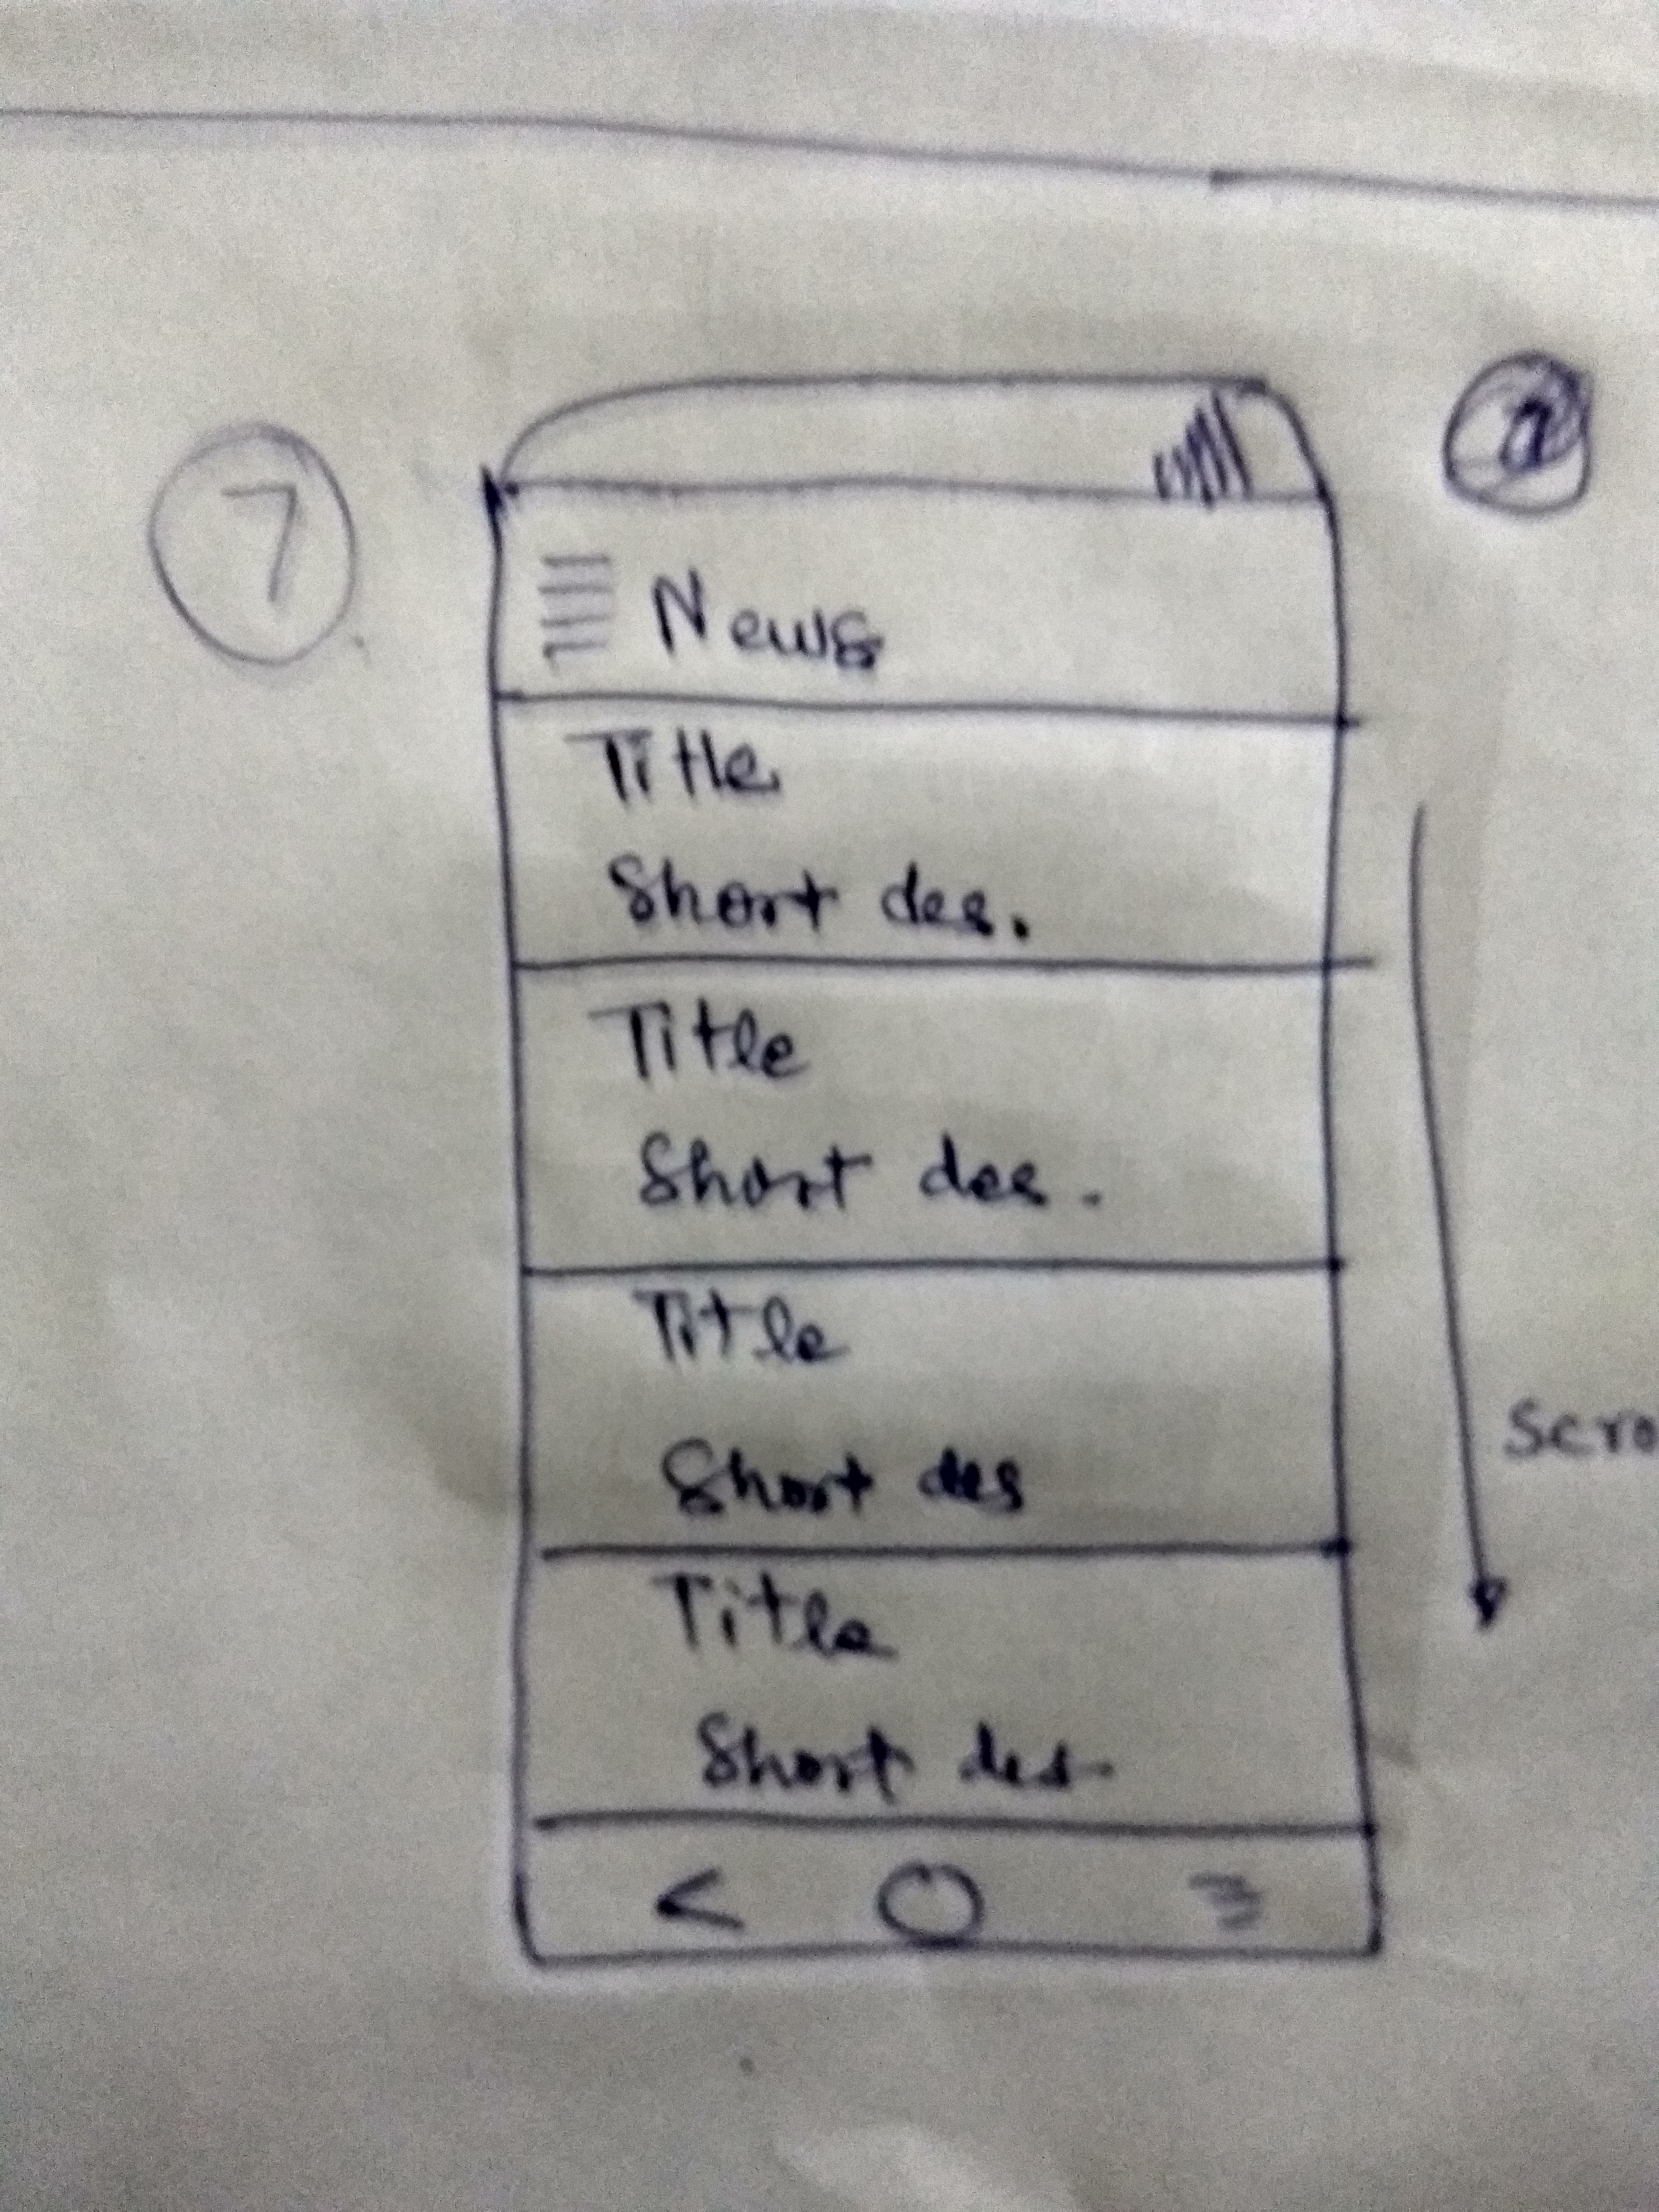 7
News
Title
Short des.
Title
Short des.
Title
Short des
Title
Short des.
Scro